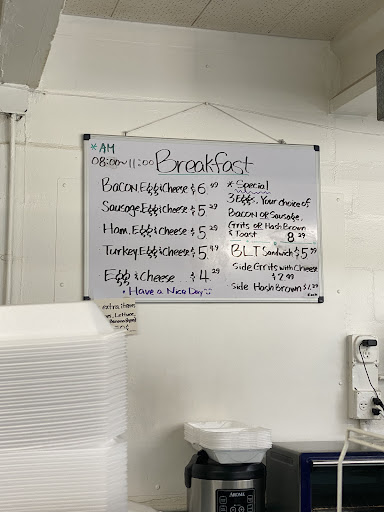 *AM
08:00~11:00 Breakfast
Bacon Egg & Cheese $ 6.
Sausage Egg & Cheese $ 5.
Ham, Egg & Cheese $ 5.
Turkey Egg & Cheese $ 5.
Egg & Cheese $ 4.
• Have a Nice Day
* Special
3 Eggs. Your choice of
Bacon or Sausage,
Grits or Hash Brown
& Toast 8.
BLT Sandwich $ 5.
Side Grits with Cheese
$ 2.99
Side Hash Brown $ 1.
extra item
Lettuce,
AROMA